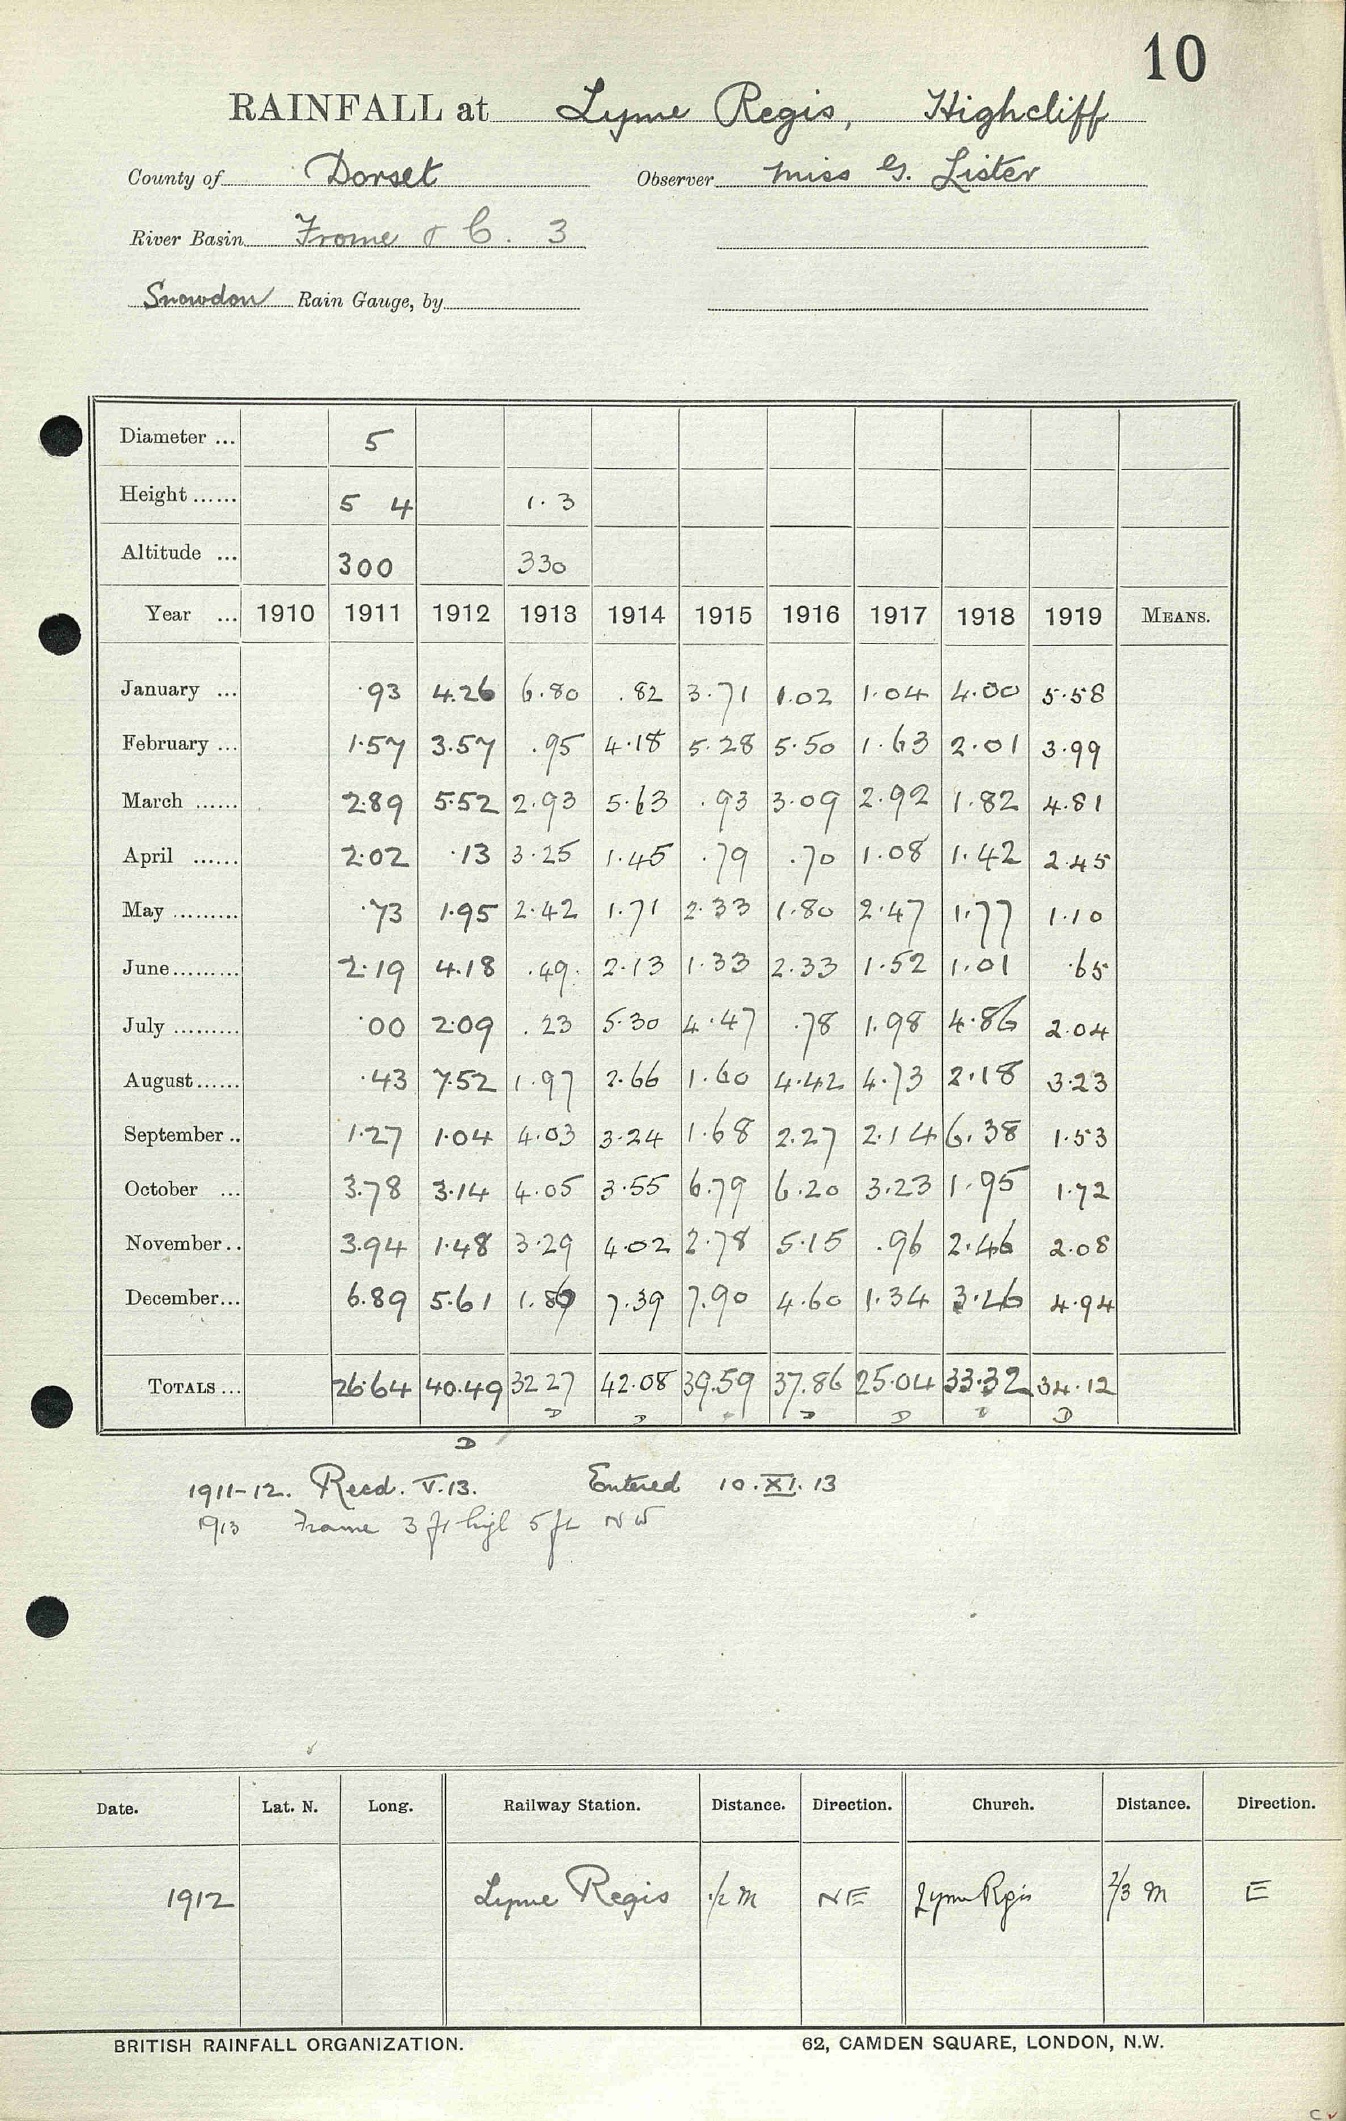 10
RAINFALL at Lyme Regis, Highcliff
County of Dorset Observer Miss G. Lister
River Basin Frome & C. 3
Snowdon Rain Gauge, by
Diameter ... 5
Height ...... 5 4 1.3
Altitude ... 300 330
Year ... 1910 1911 1912 1913 1914 1915 1916 1917 1918 1919 MEANS.
January ... .93 4.26 6.80 .82 3.71 1.02 1.04 4.00 5.58
February ... 1.57 3.57 .95 4.18 5.28 5.50 1.63 2.01 3.99
March ...... 2.89 5.52 2.93 5.63 .93 3.09 2.92 1.82 4.81
April ...... 2.02 .13 3.25 1.45 .79 .70 1.08 1.42 2.45
May ......... .73 1.95 2.42 1.71 2.33 1.80 2.47 1.77 1.10
June......... 2.19 4.18 .49 2.13 1.33 2.33 1.52 1.01 .65
July ......... .00 2.09 .23 5.30 4.47 .78 1.98 4.86 2.04
August...... .43 7.52 1.97 2.66 1.60 4.42 4.73 2.18 3.23
September .. 1.27 1.04 4.03 3.24 1.68 2.27 2.14 6.38 1.53
October ... 3.78 3.14 4.05 3.55 6.79 6.20 3.23 1.95 1.72
November.. 3.94 1.48 3.29 4.02 2.78 5.15 .96 2.46 2.08
December... 6.89 5.61 1.86 7.39 7.90 4.60 1.34 3.46 4.94
TOTALS ... 26.64 40.49 32.27 42.08 39.59 37.86 25.04 33.32 34.12
D D D D D D
D
1911-12. Recd. V.13. Entered 10.XI.13
1913 Frame 3 ft high 5 ft NW
Date. Lat. N. Long. Railway Station. Distance. Direction. Church. Distance. Direction.
1912 Lyme Regis 1/2 M NE Lyme Regis 2/3 M E
BRITISH RAINFALL ORGANIZATION. 62, CAMDEN SQUARE, LONDON, N.W.